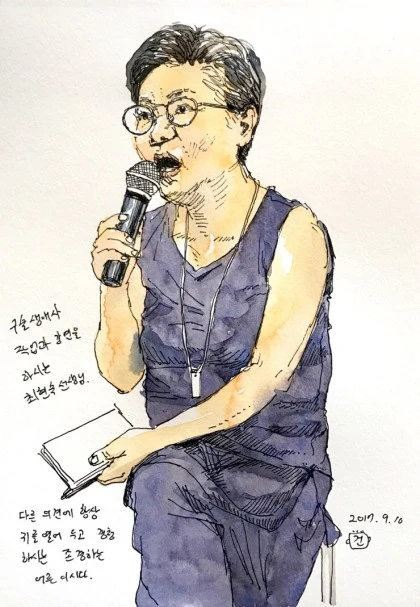 구술생애사
작업과 강연을
하시는
최현숙 선생님.
다른 의견에 항상
귀로 열어 두고 경청
하시는 존경하는
어른 이시다.
2017. 9. 10
건